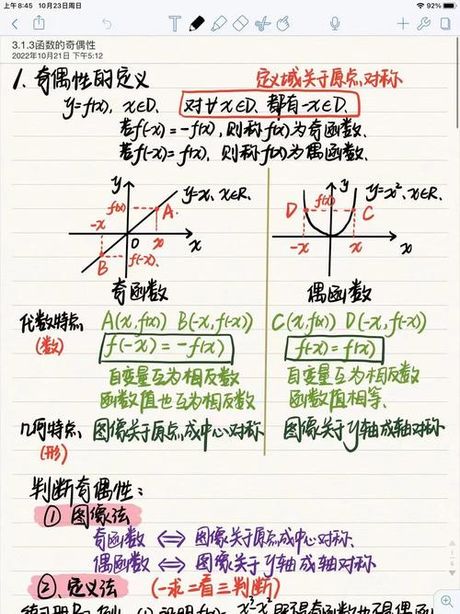 上午8:45 10月23日周日
92%
3.1.3函数的奇偶性
2022年10月21日 下午5:12
1. 奇偶性的定义 定义域关于原点对称
y=f(x), x∈D. 对∀x∈D, 都有-x∈D.
若f(-x)=-f(x), 则称f(x)为奇函数.
若f(-x)=f(x), 则称f(x)为偶函数.
y
f(x)
A
y=x, x∈R.
-x
O
x
x
B
f(-x)
奇函数
y
f(x)
y=x², x∈R.
D
C
-x
x
x
偶函数
代数特点 A(x,f(x)) B(-x,f(-x)) C(x,f(x)) D(-x,f(-x))
(数) f(-x)=-f(x) f(-x)=f(x)
自变量互为相反数 自变量互为相反数
函数值也互为相反数 函数值相等.
几何特点 图像关于原点成中心对称 图像关于y轴成轴对称
(形)
判断奇偶性:
① 图像法
奇函数 ⇔ 图像关于原点成中心对称.
偶函数 ⇔ 图像关于y轴成轴对称
②. 定义法 (一求二看三判断)